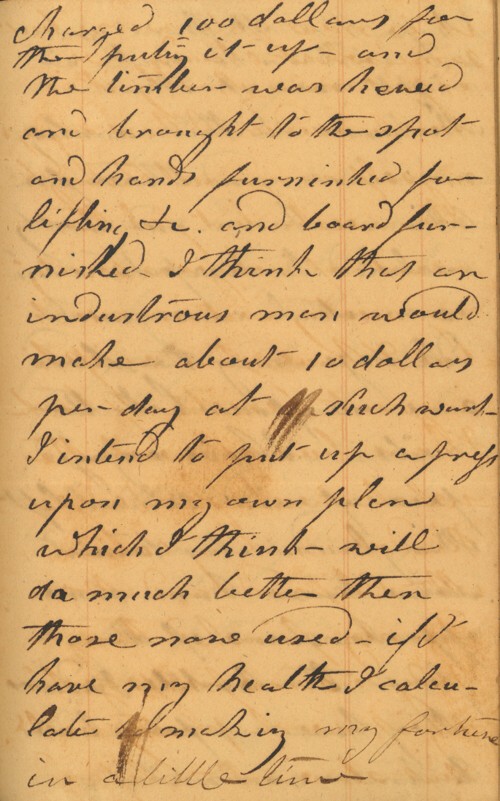 charged 100 dollars for
the puting it up - and
the timber was hewed
and brought to the spot
and hands furnished for
lifting &c. and board fur-
nished - I think that an
industrous man would
make about 10 dollars
per day at such work -
I intend to put up a press
upon my own plan
which I think - will
do much better then
those now used - if I
have my health I calcu-
late making my fortune
in a little time